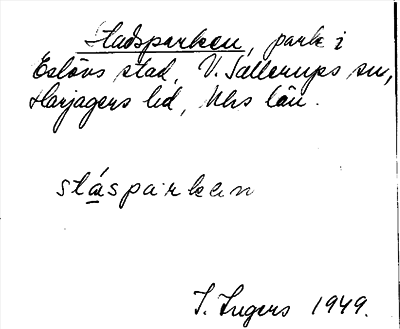 Stadsparken, park i
Eslövs stad, V. Sallerups sn,
Harjagers hd, Mhs län.
stásparken
I. Ingers 1949.